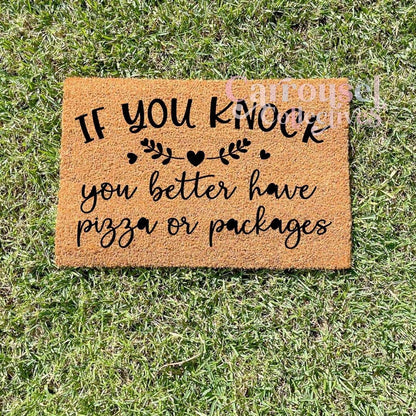 Carousel
Collective
IF YOU KNOCK
you better have
pizza or packages